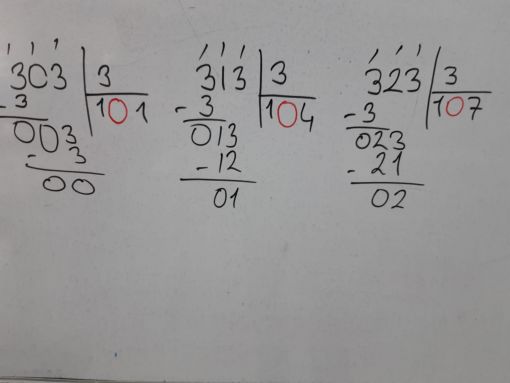 303 3
-3 101
003
- 3
00
313 3
-3 104
013
-12
01
323 3
-3 107
023
-21
02